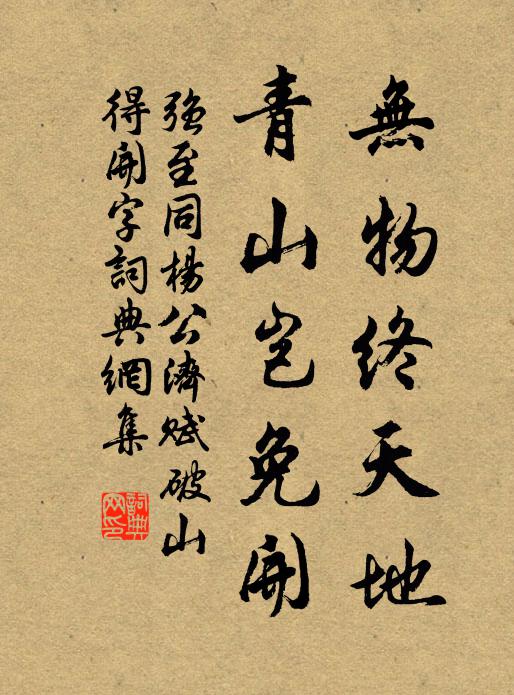 無物終天地
青山岂免開
強至同楊公濟賦破山
得開字詞典網集
詞典
网印